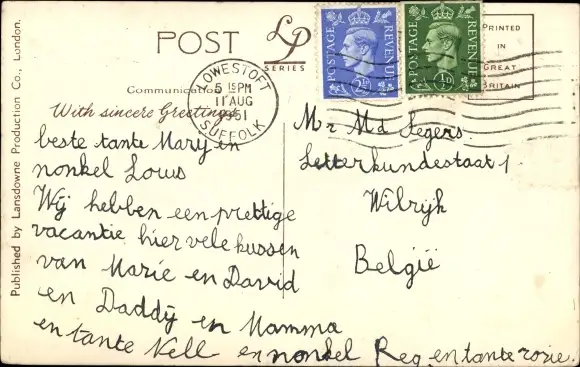 Published by Lansdowne Production Co., London.
POST
LP
SERIES
PRINTED
IN
GREAT
BRITAIN
POSTAGE REVENUE
2½D
POSTAGE REVENUE
½D
LOWESTOFT
5 15 PM
11 AUG
1951
SUFFOLK
Communication
With sincere Greetings
beste tante Mary en
nonkel Louis
Wij hebben een prettige
vacantie hier vele kussen
van Marie en David
en Daddy en Mamma
en tante Nell en nonkel Reg en tante rozie.
Mr Md Segers
Letterkundestaat 1
Wilrijk
België